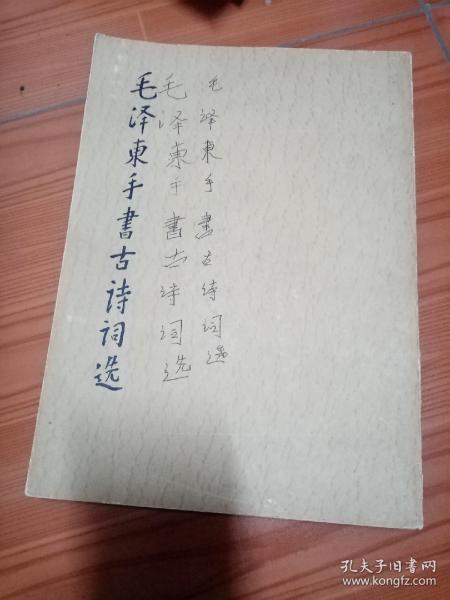 毛泽東手書古诗词选
毛泽東手書古诗词选
毛泽東手書古诗词选
孔夫子旧书网
www.kongfz.com